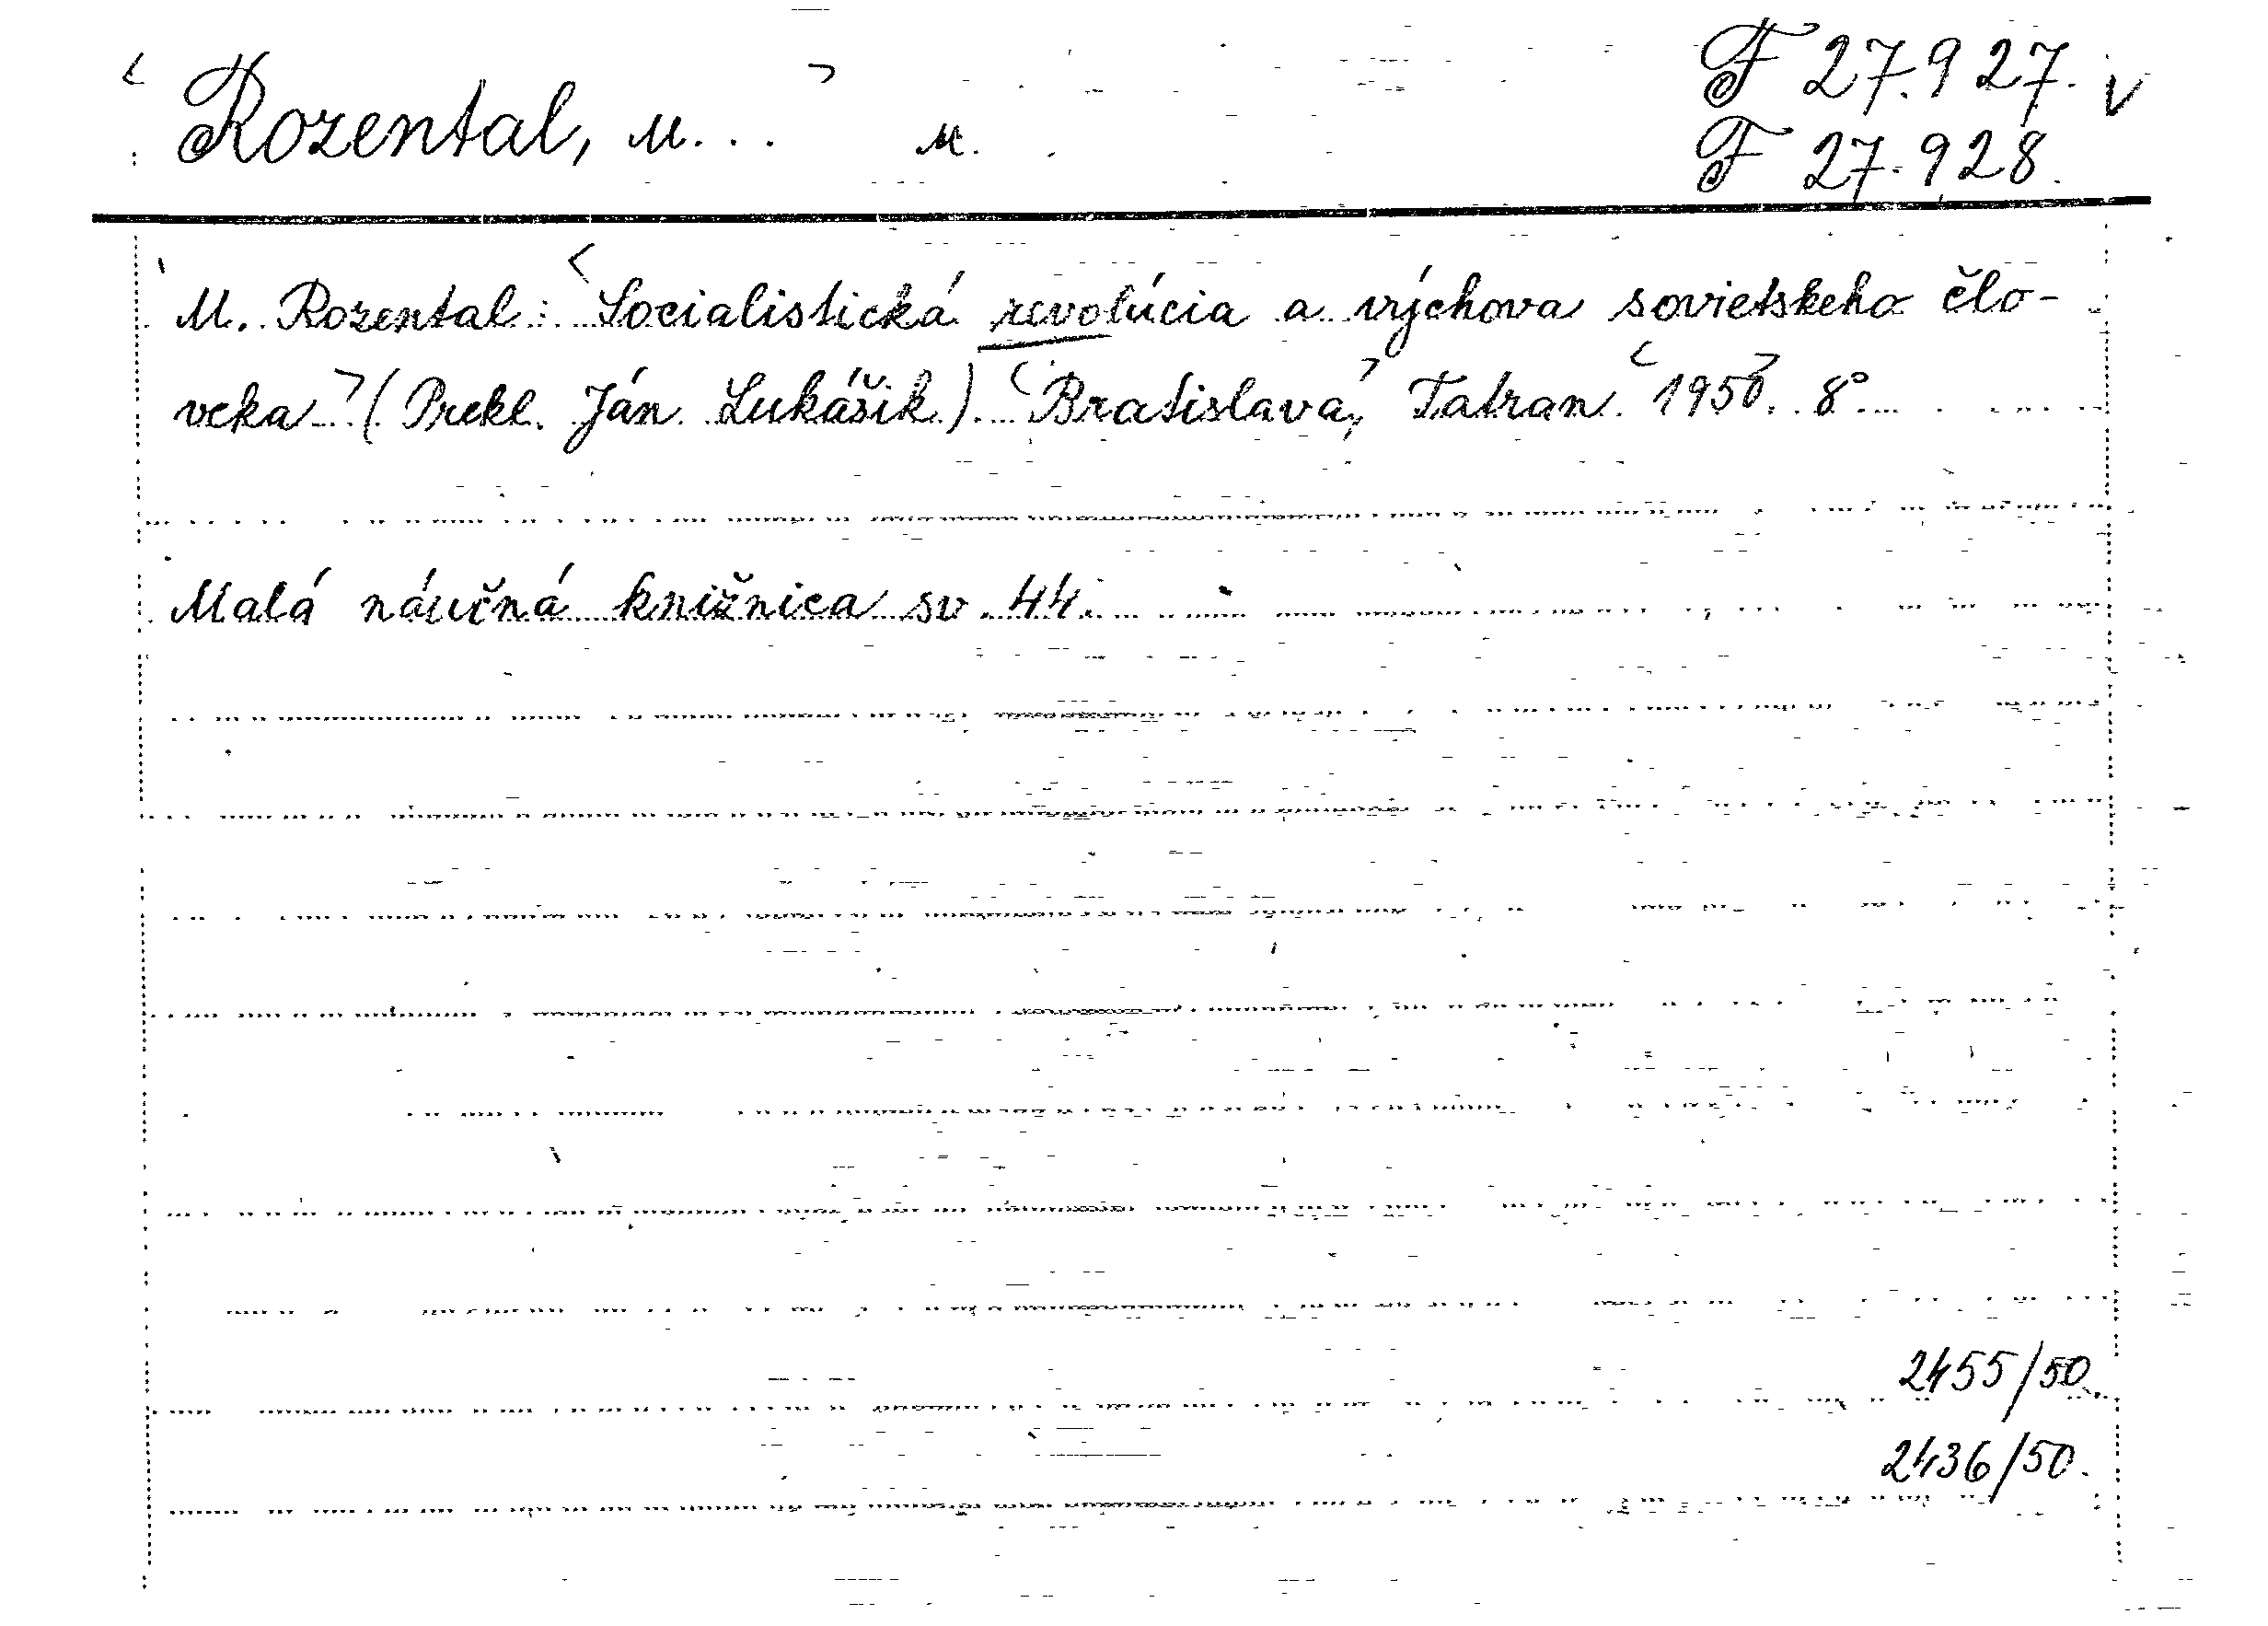 Rozental, M... M.
F 27.927. V
F 27.928.
M. Rozental: Socialistická revolúcia a výchova sovietskeho člo-
veka (Prekl. Ján Lukášik). Bratislava, Tatran 1950. 8°
Malá náučná knižnica sv. 44.
2455/50
2436/50.